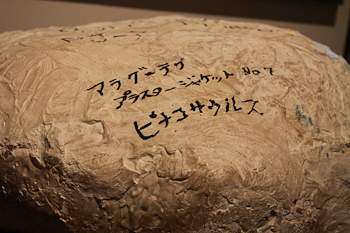 マラグ
プラスタージャケット No 7
ピナコサウルス